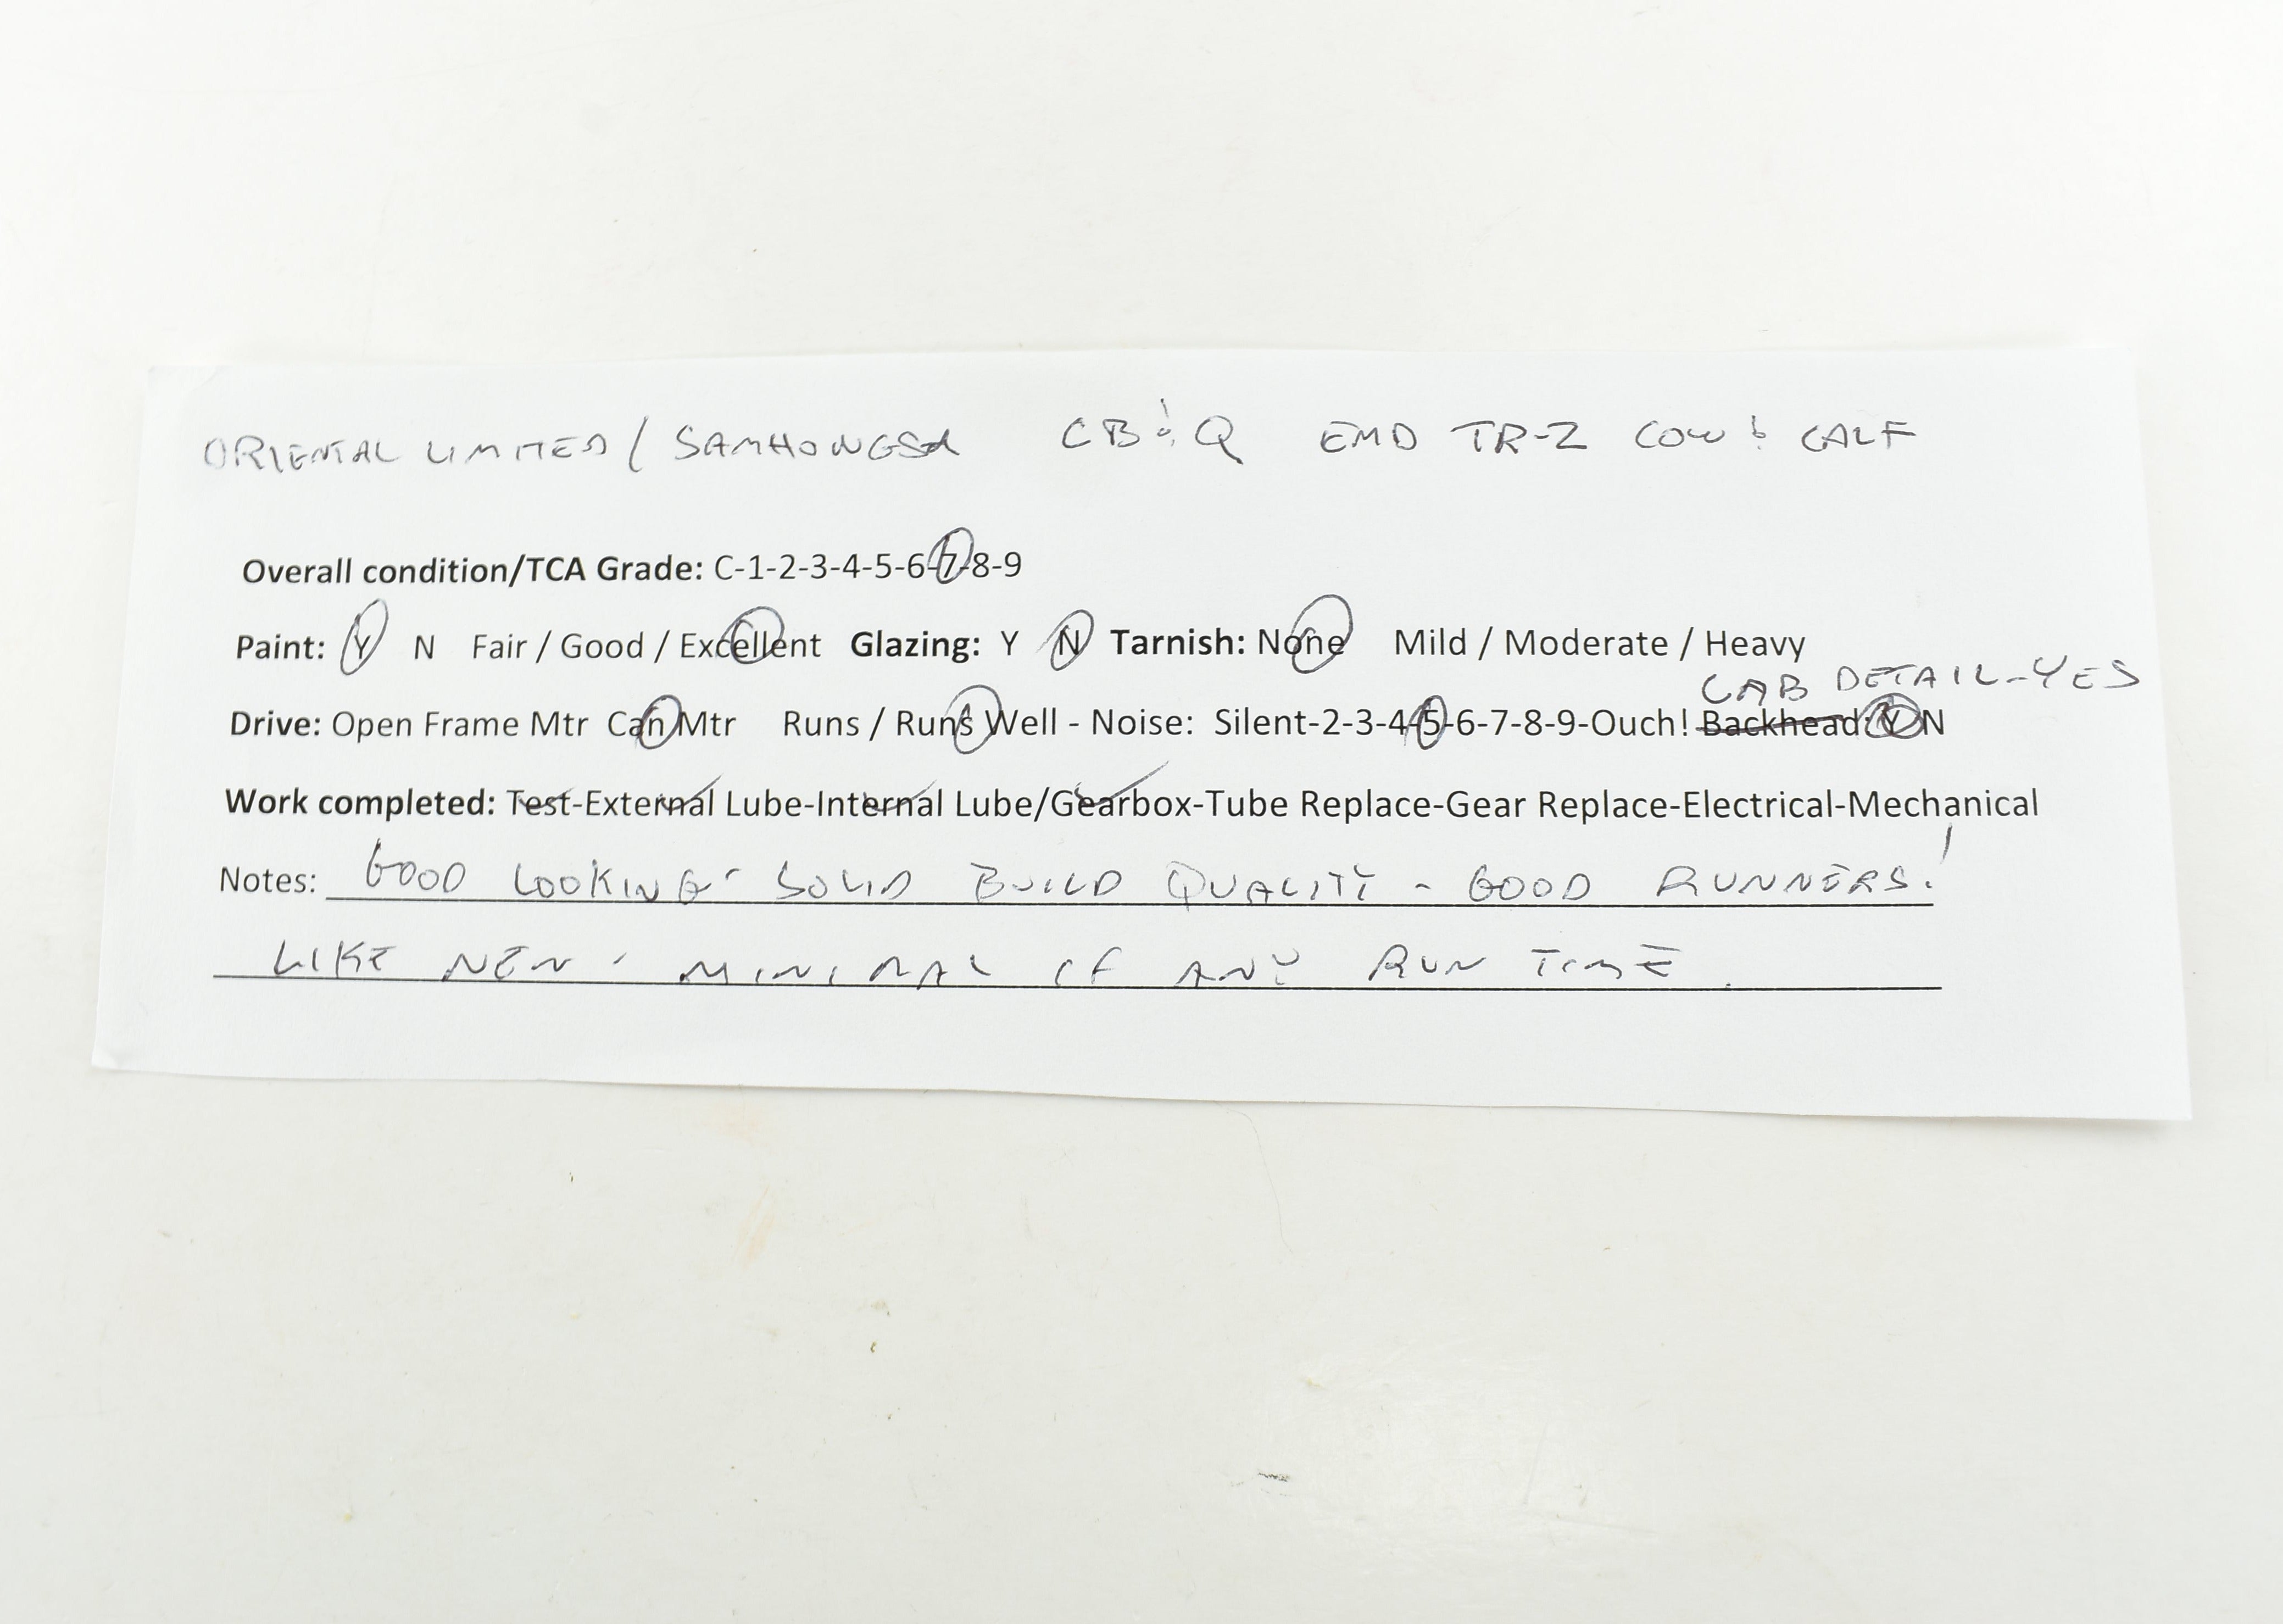 ORIENTAL LIMITED / SAMHONGSA CB & Q EMD TR-2 COW & CALF
Overall condition/TCA Grade: C-1-2-3-4-5-6-7-8-9
Paint: Y N Fair / Good / Excellent Glazing: Y N Tarnish: None Mild / Moderate / Heavy
CAB DETAIL-YES
Drive: Open Frame Mtr Can Mtr Runs / Runs Well - Noise: Silent-2-3-4-5-6-7-8-9-Ouch! Backhead: Y N
Work completed: Test-External Lube-Internal Lube/Gearbox-Tube Replace-Gear Replace-Electrical-Mechanical
Notes: GOOD LOOKING - SOLID BUILD QUALITY - GOOD RUNNERS!
LIKE NEW - MINIMAL IF ANY RUN TIME.